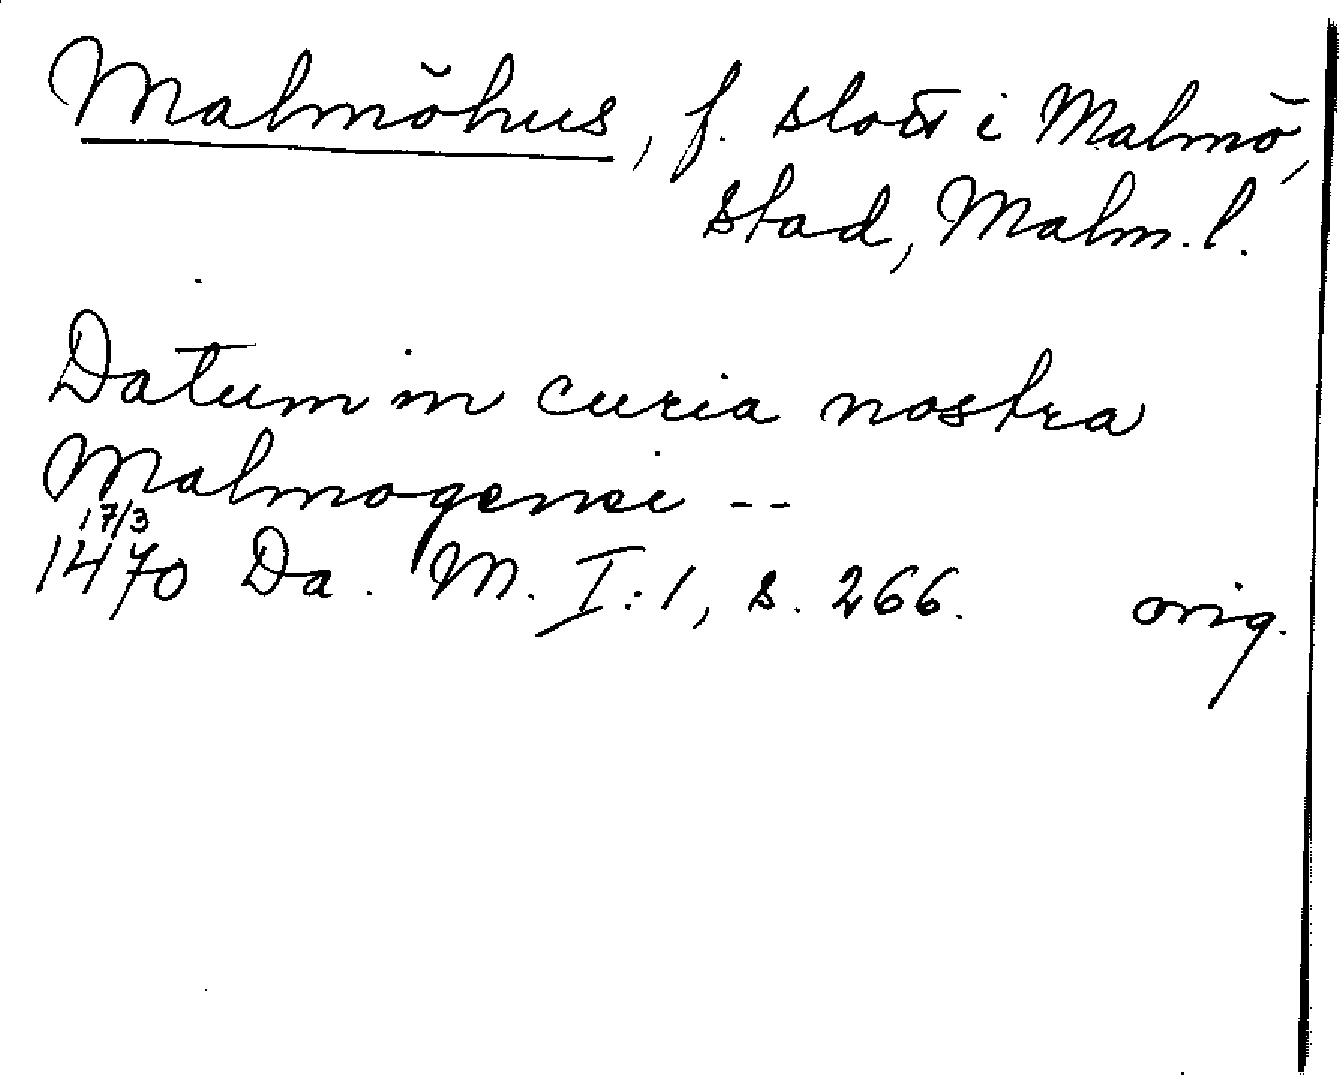 Malmöhus, f. slott i Malmö,
stad, Malm. l.
Datum in curia nostra
Malmogensi --
17/3
1470 Da. M. I:1, s. 266. orig.